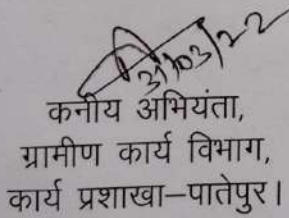 31/03/22
कनीय अभियंता,
ग्रामीण कार्य विभाग,
कार्य प्रशाखा–पातेपुर।